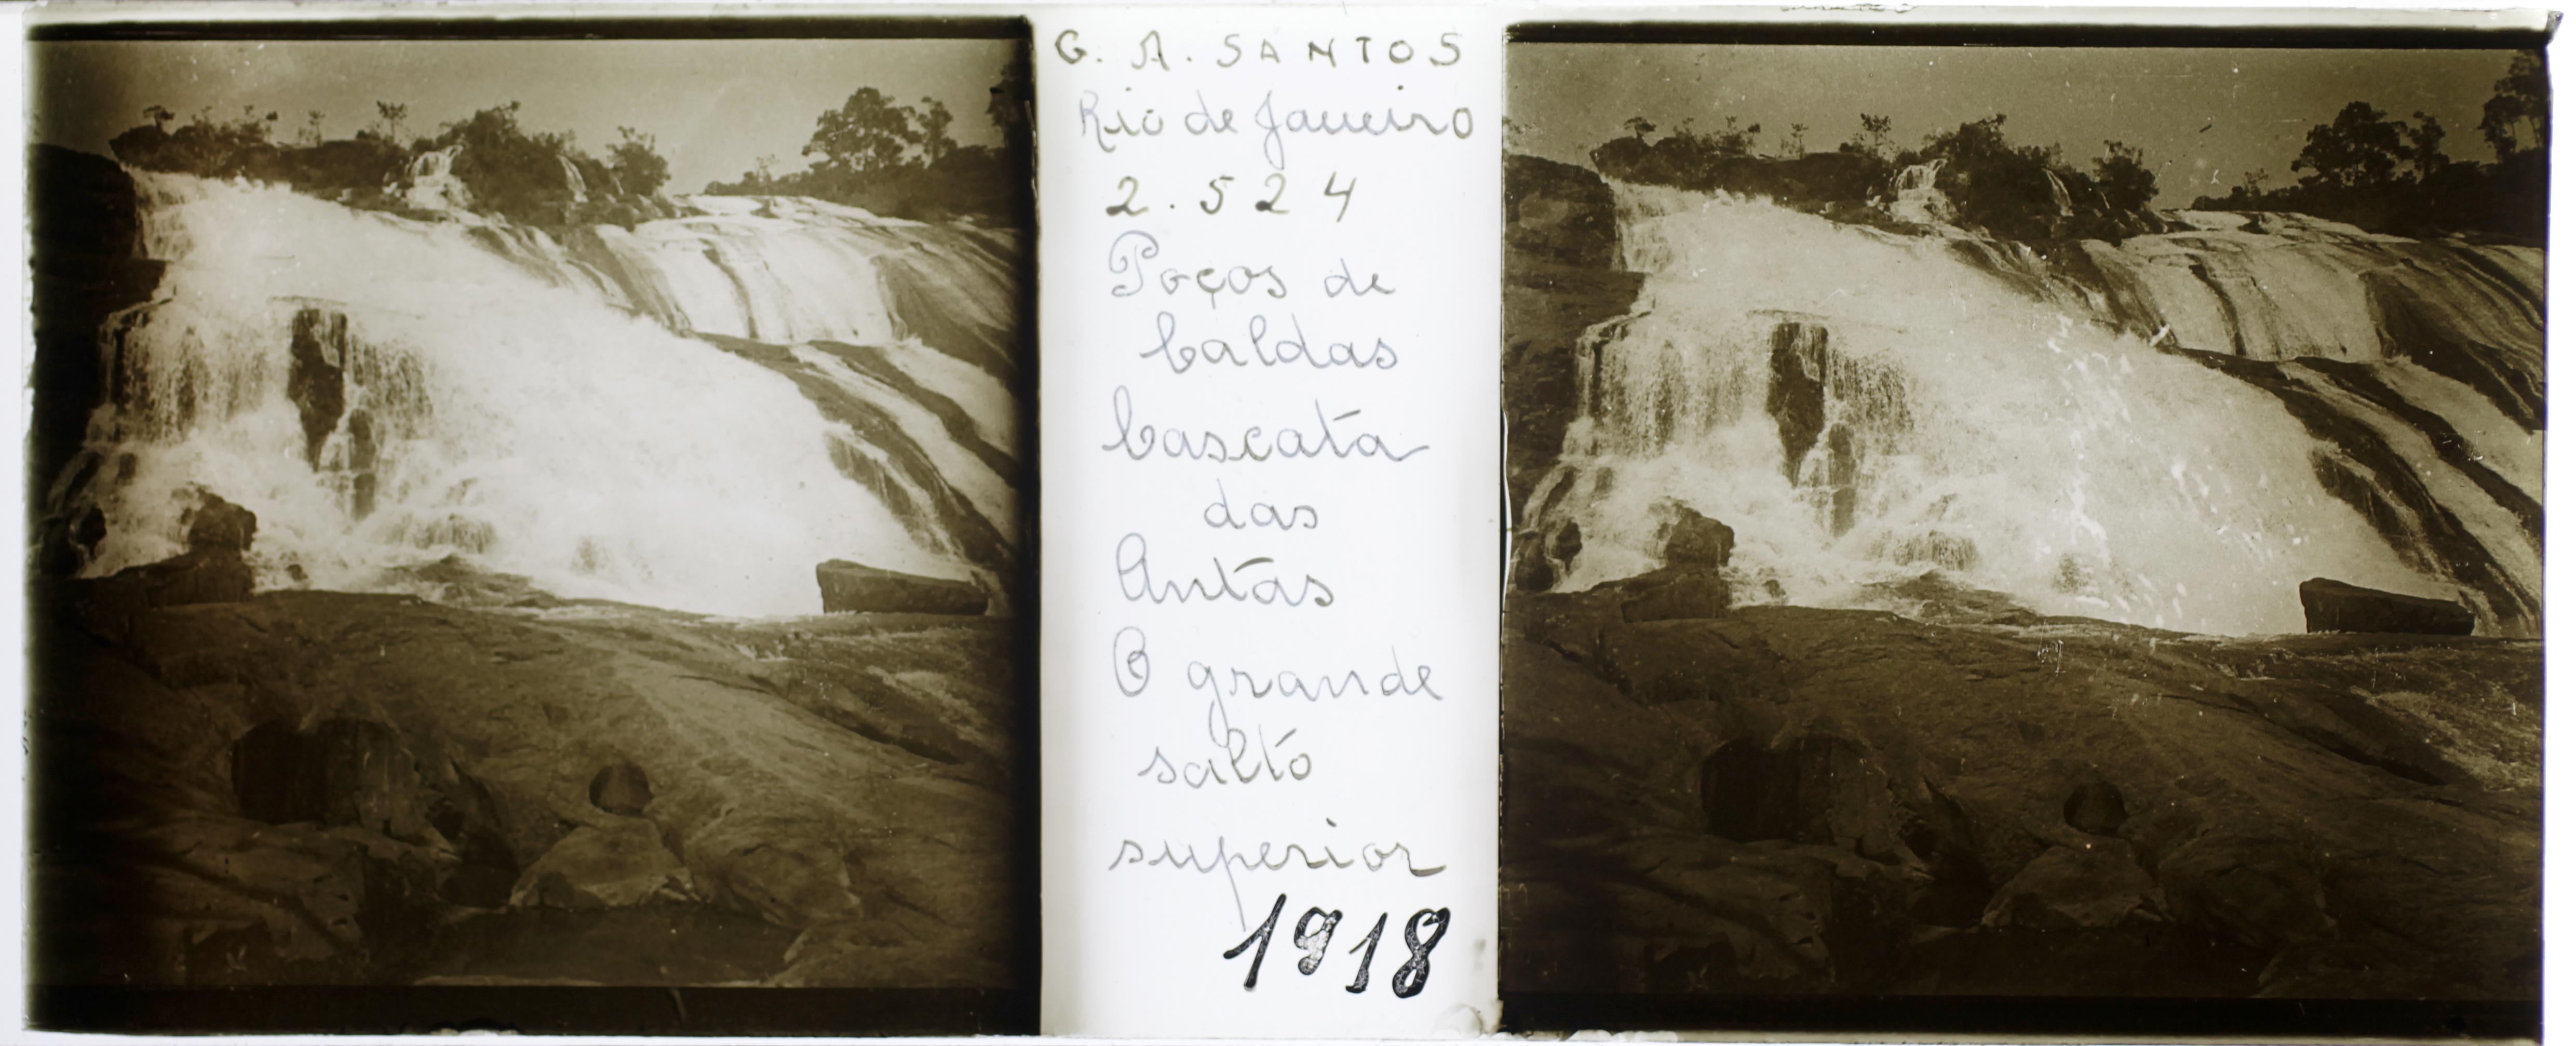 G. A. SANTOS
Rio de Janeiro
2.524
Poços de
Caldas
Cascata
das
Antas
O grande
salto
superior
1918